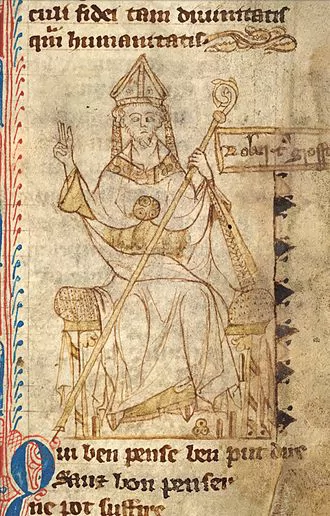 culi fidei tam diuinitatis
qͣm humanitatis
Qui ben pense ben put dire
Sanz bon penser
ne pot suffire